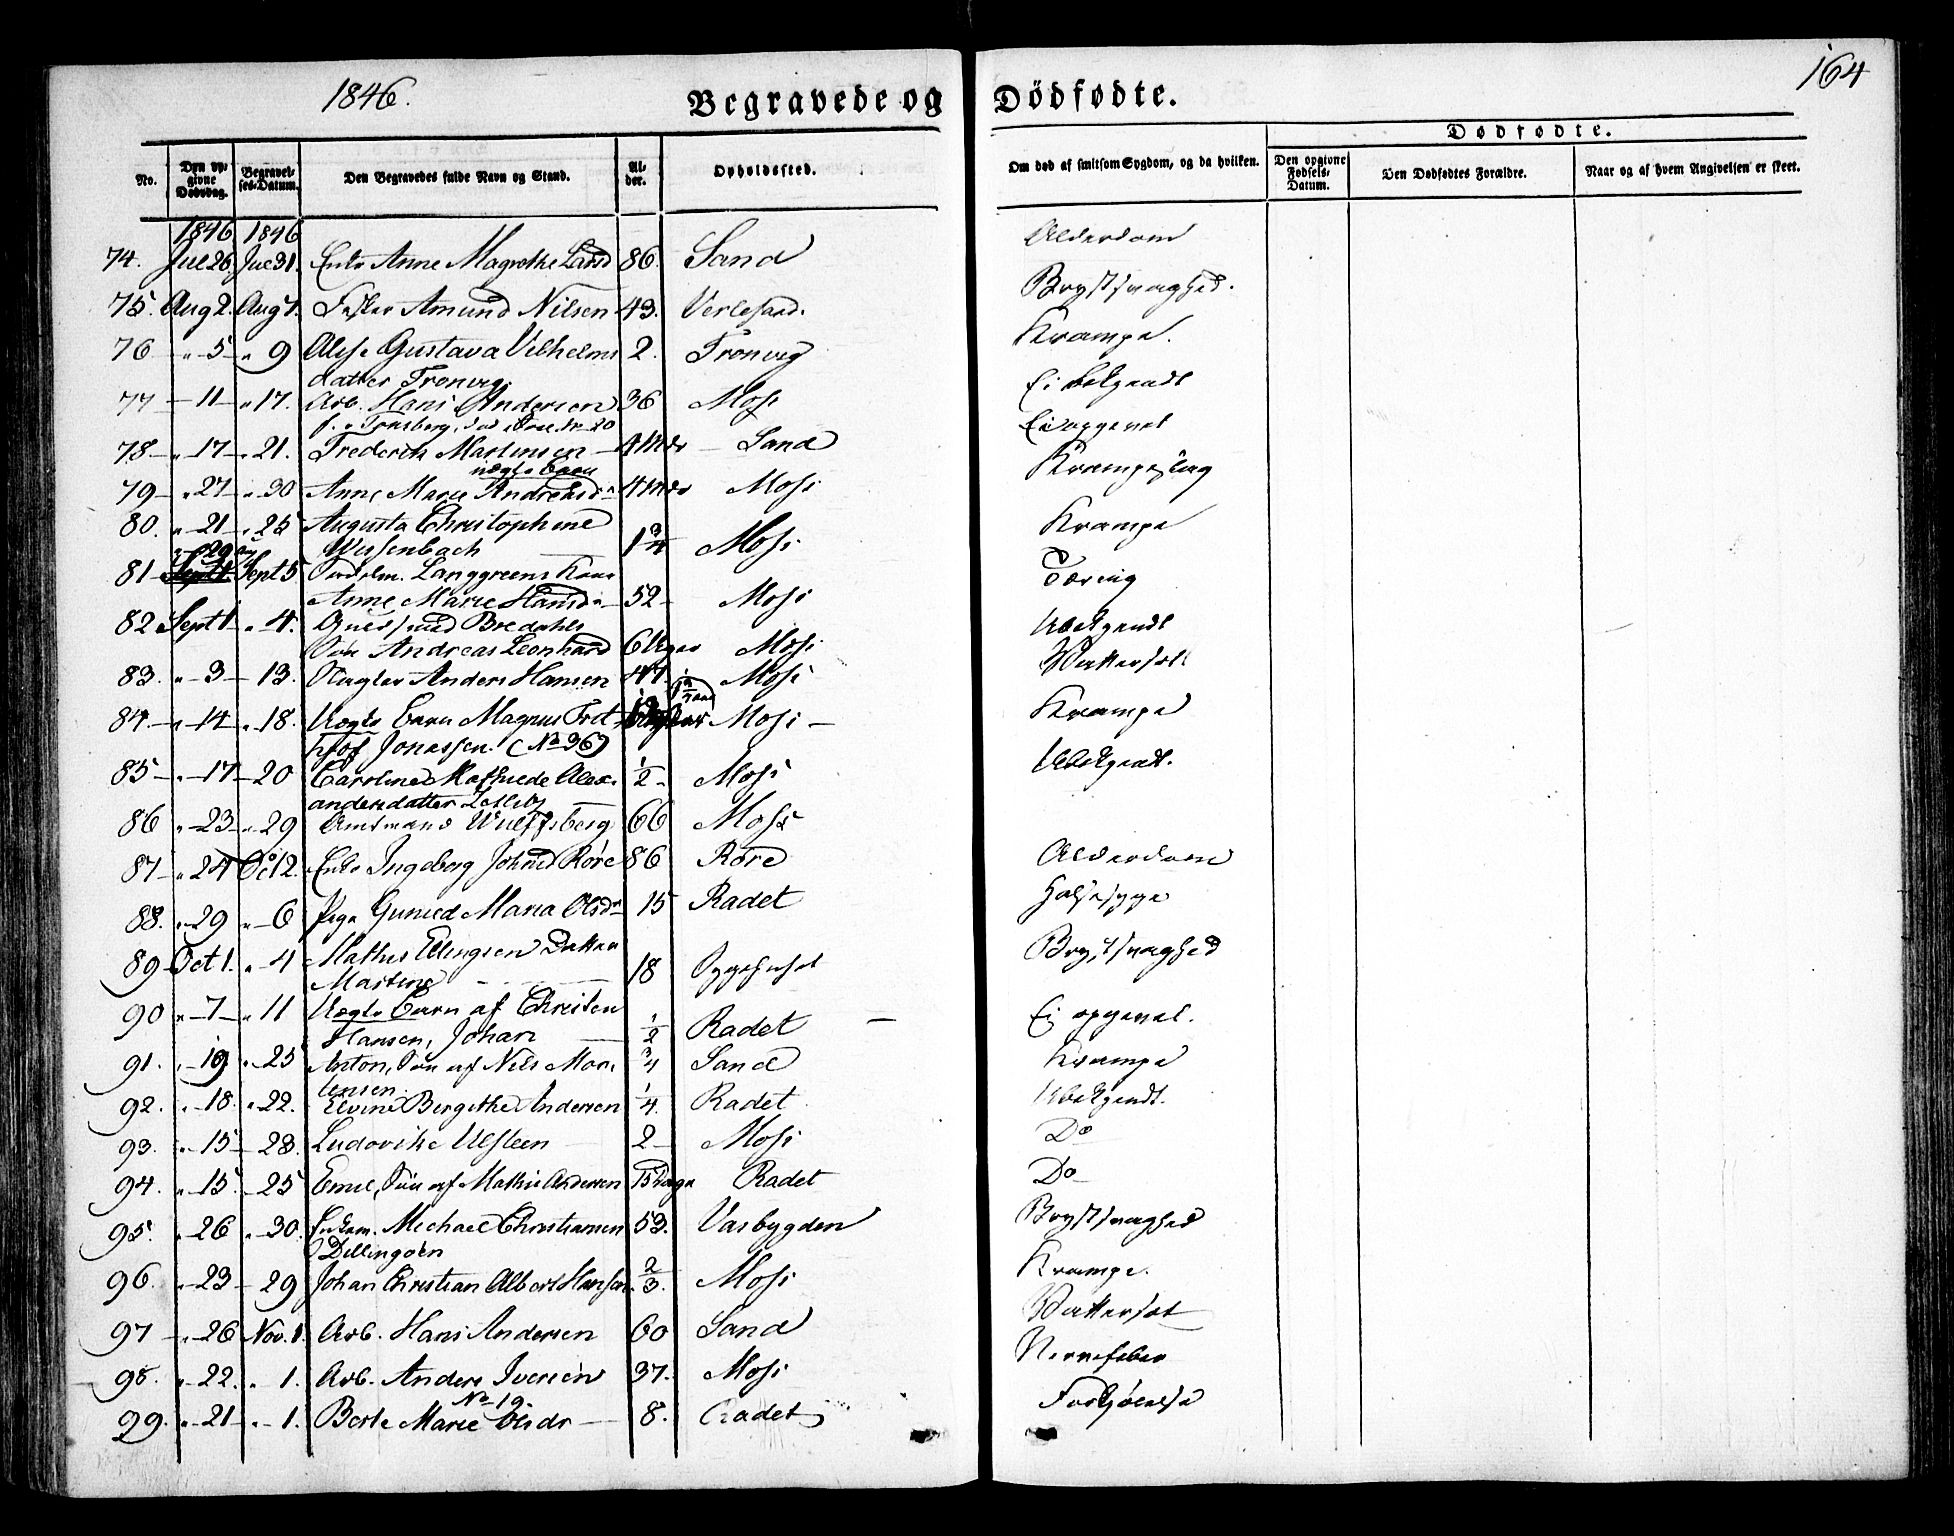 1846.
Begravede og Dödfödte.
164
No.
Den opgivne Dødsdag.
Begravelses-Datum.
Den Begravedes fulde Navn og Stand.
Alder.
Opholdssted.
Om død af smitsom Sygdom, og da hvilken.
Dødfødte.
Den opgivne Fødsels-Datum.
Den Dødfødtes Forældre.
Naar og af hvem Angivelsen er skeet.
1846 1846
74. Jul 26 Jul 31. Enke Anne Magrethe Land 86. Sand Alderdom
75. Aug 2. Aug 7. Amund Nilsen 43. Verlesand. Brystsvaghed.
76 " 5 " 9 Gustava Vilhelms 2. Tronvig Krampe.
datter Tronvig.
77 — 11 — " 17. Arb. Hans Andersen 36 Moss Ei bekjendt
f. i Tønsberg,
78 — " 17 — " 21. Frederik Martinsen — 4 Mdr — Sand Ei opgivet
uægte Barn
79 — " 27 — " 30 Anne Marie Andreasd 4 Mdr Moss Krampeslag
80. " 21 — " 25 Augusta Christophine
Weissenbach 1 3/4 Moss Krampe
" 29 Aug
81 — Sept 1 Sept 5 Langgreens Kone
Anne Marie Hansd — 52 — Moss Tæring
82 Sept 1 — " 4. Bredahls
Søn Andreas Leonhard 6 Uger Moss Ubekjendt
83. " 3 — 13. Nagler Anders Hansen 47. Moss Vattersot
84 — " 14 — " 18. Uægte Barn Magnus Frit Moss — Krampe
hjof Jonassen. (No 36)
85 — " 17 — 20 Caroline Mathilde Alex
andersdatter 1/2 — Moss Ubekjendt.
86 " 23 — " 29 Amtmand Wulfsberg 66 Moss
87 — " 24 Oct 2. Enke Ingeborg Johnsd Røre 86 Røre Alderdom
88. " 29 " 6 Pige Gunild Maria Olsdr 15 Radet Halssyge
89 Oct 1. " 4 Mathis Ellingsen Datter
Martine — 18 Sygehuset Brystsvaghed
90 " 7 — " 11 Uægte Barn af Christen
Hansen, Johan 1/2 Radet — Ei opgivet.
91. " 19 " 25 Anton, Søn af Nils Mor 3/4 Sand Krampe
tensen.
92. " 18. " 22. Elvine Bergithe Andersen 1/4. Radet Ubekjendt.
93. " 15 — " 28. Ludovike Ulsteen 2 — Moss Do
94. " 15. — 25 Emil, Søn af Mathis Andersen 15 Dage Radet Do
95. " 26 " 30. Michael Christiansen 53. Vasbygden Brystsvaghed
Dillingøen
96. " 23 — 29 Johan Christian Albert Hansen. 2/3. Moss Krampe.
97 — " 26 Nov. 1. Arb. Hans Andersen 60 Sand Vattersot
98. " 22. " 1. Arb. Anders Iversen 37. Moss Nervefeber
No 19.
99. " 21 — " 1. Berte Marie Olsdr — 8. Radet Forkjølelse